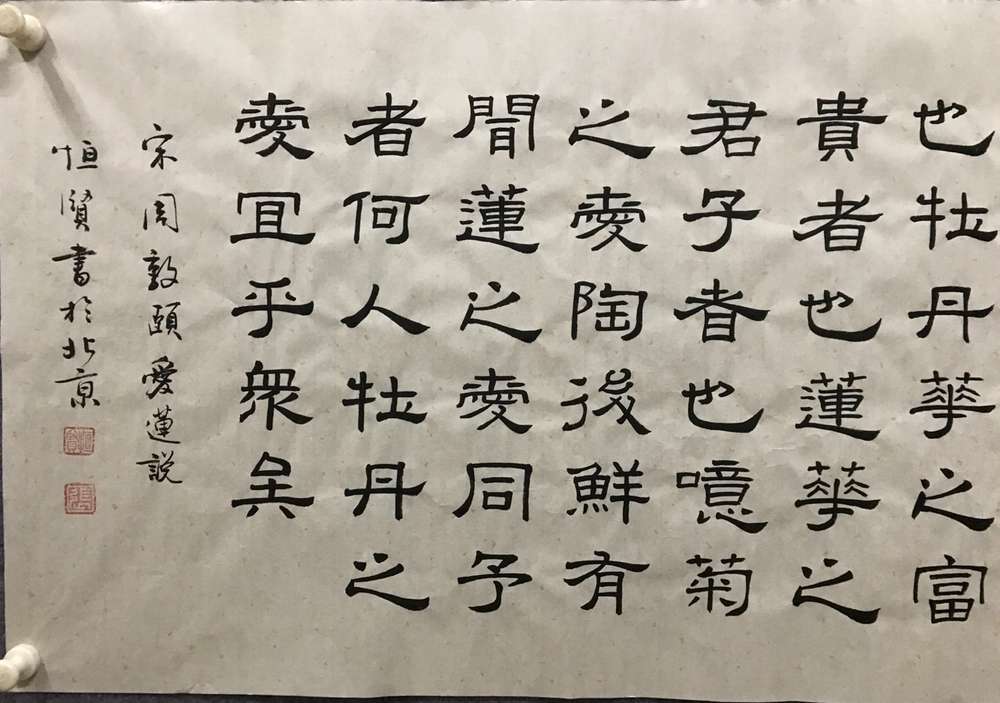 也牡丹華之富
貴者也蓮華之
君子者也噫菊
之愛陶後鮮有
聞蓮之愛同予
者何人牡丹之
愛宜乎衆矣
宋周敦頤愛蓮説
恒賢書於北京